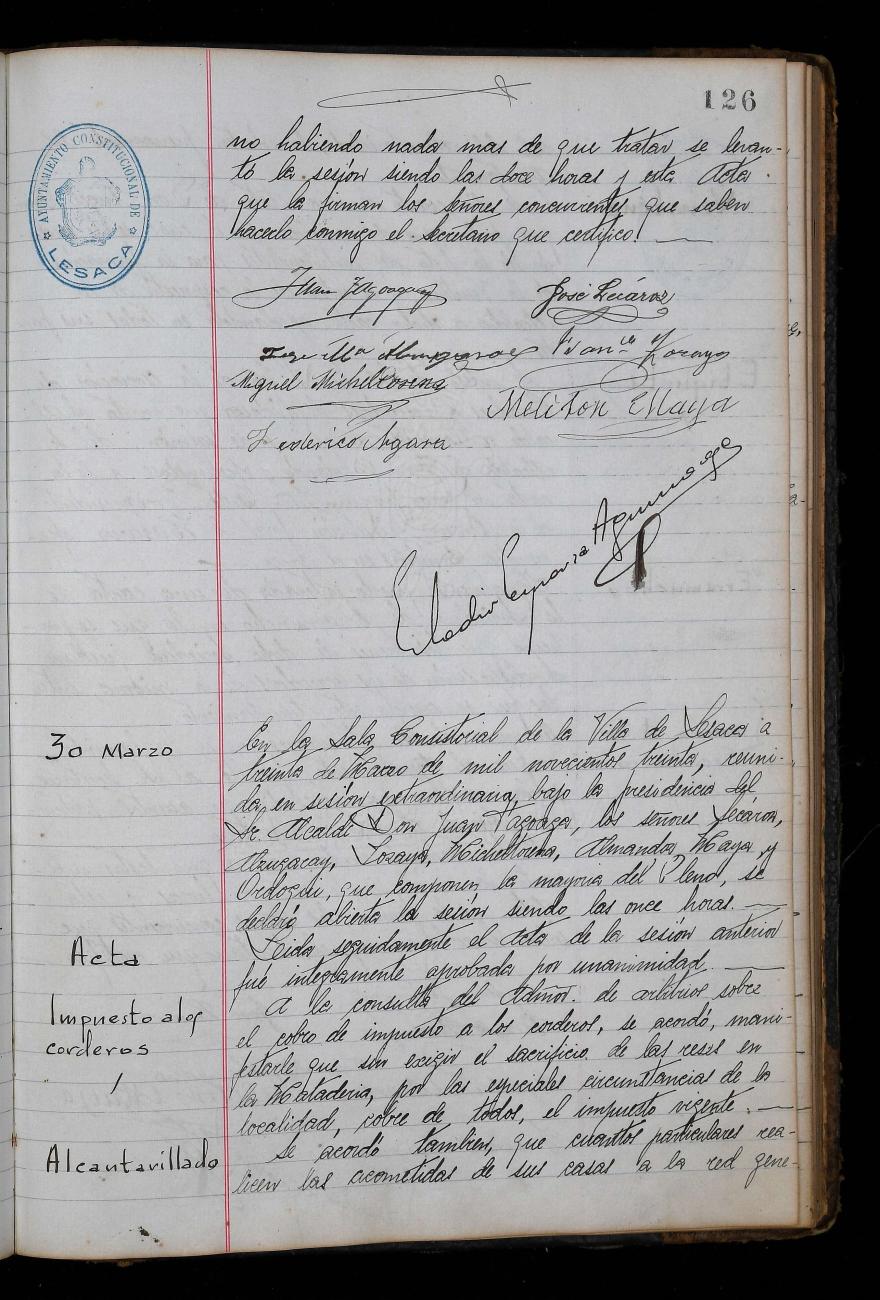 126
AYUNTAMIENTO CONSTITUCIONAL DE
LESACA
no habiendo nada mas de que tratar se levan-
tó la sesión siendo las doce horas y esta Acta
que la firman los señores concurrentes que saben
hacerlo conmigo el Secretario que certifico.
Juan
José Lecároz
Jose Mª
Franco
Miguel Micheltorena
Meliton Maya
Federico
Eladio Esparza
30 Marzo
En la Sala Consistorial de la Villa de Lesaca a
treinta de Marzo de mil novecientos treinta, reuni-
da en sesión extraordinaria, bajo la presidencia del
Sr. Alcalde Don Juan Tagoaga, los señores Lecároz,
Alzugaray, Lozaya, Micheltorena, Almandoz, Maya y
Ordoqui, que componen la mayoria del Pleno, se
declaró abierta la sesión siendo las once horas.
Acta
Leida seguidamente el Acta de la sesión anterior
fué integramente aprobada por unanimidad.
Impuesto a los
corderos
A la consulta del Admor. de arbitrios sobre
el cobro de impuesto a los corderos, se acordó, mani-
festarle que sin exigir el sacrificio de las reses en
la Mataderia, por las especiales circunstancias de la
localidad, cobre de todos, el impuesto vigente.
Alcantarillado
Se acordó tambien, que cuantos particulares rea-
licen las acometidas de sus casas a la red gene-